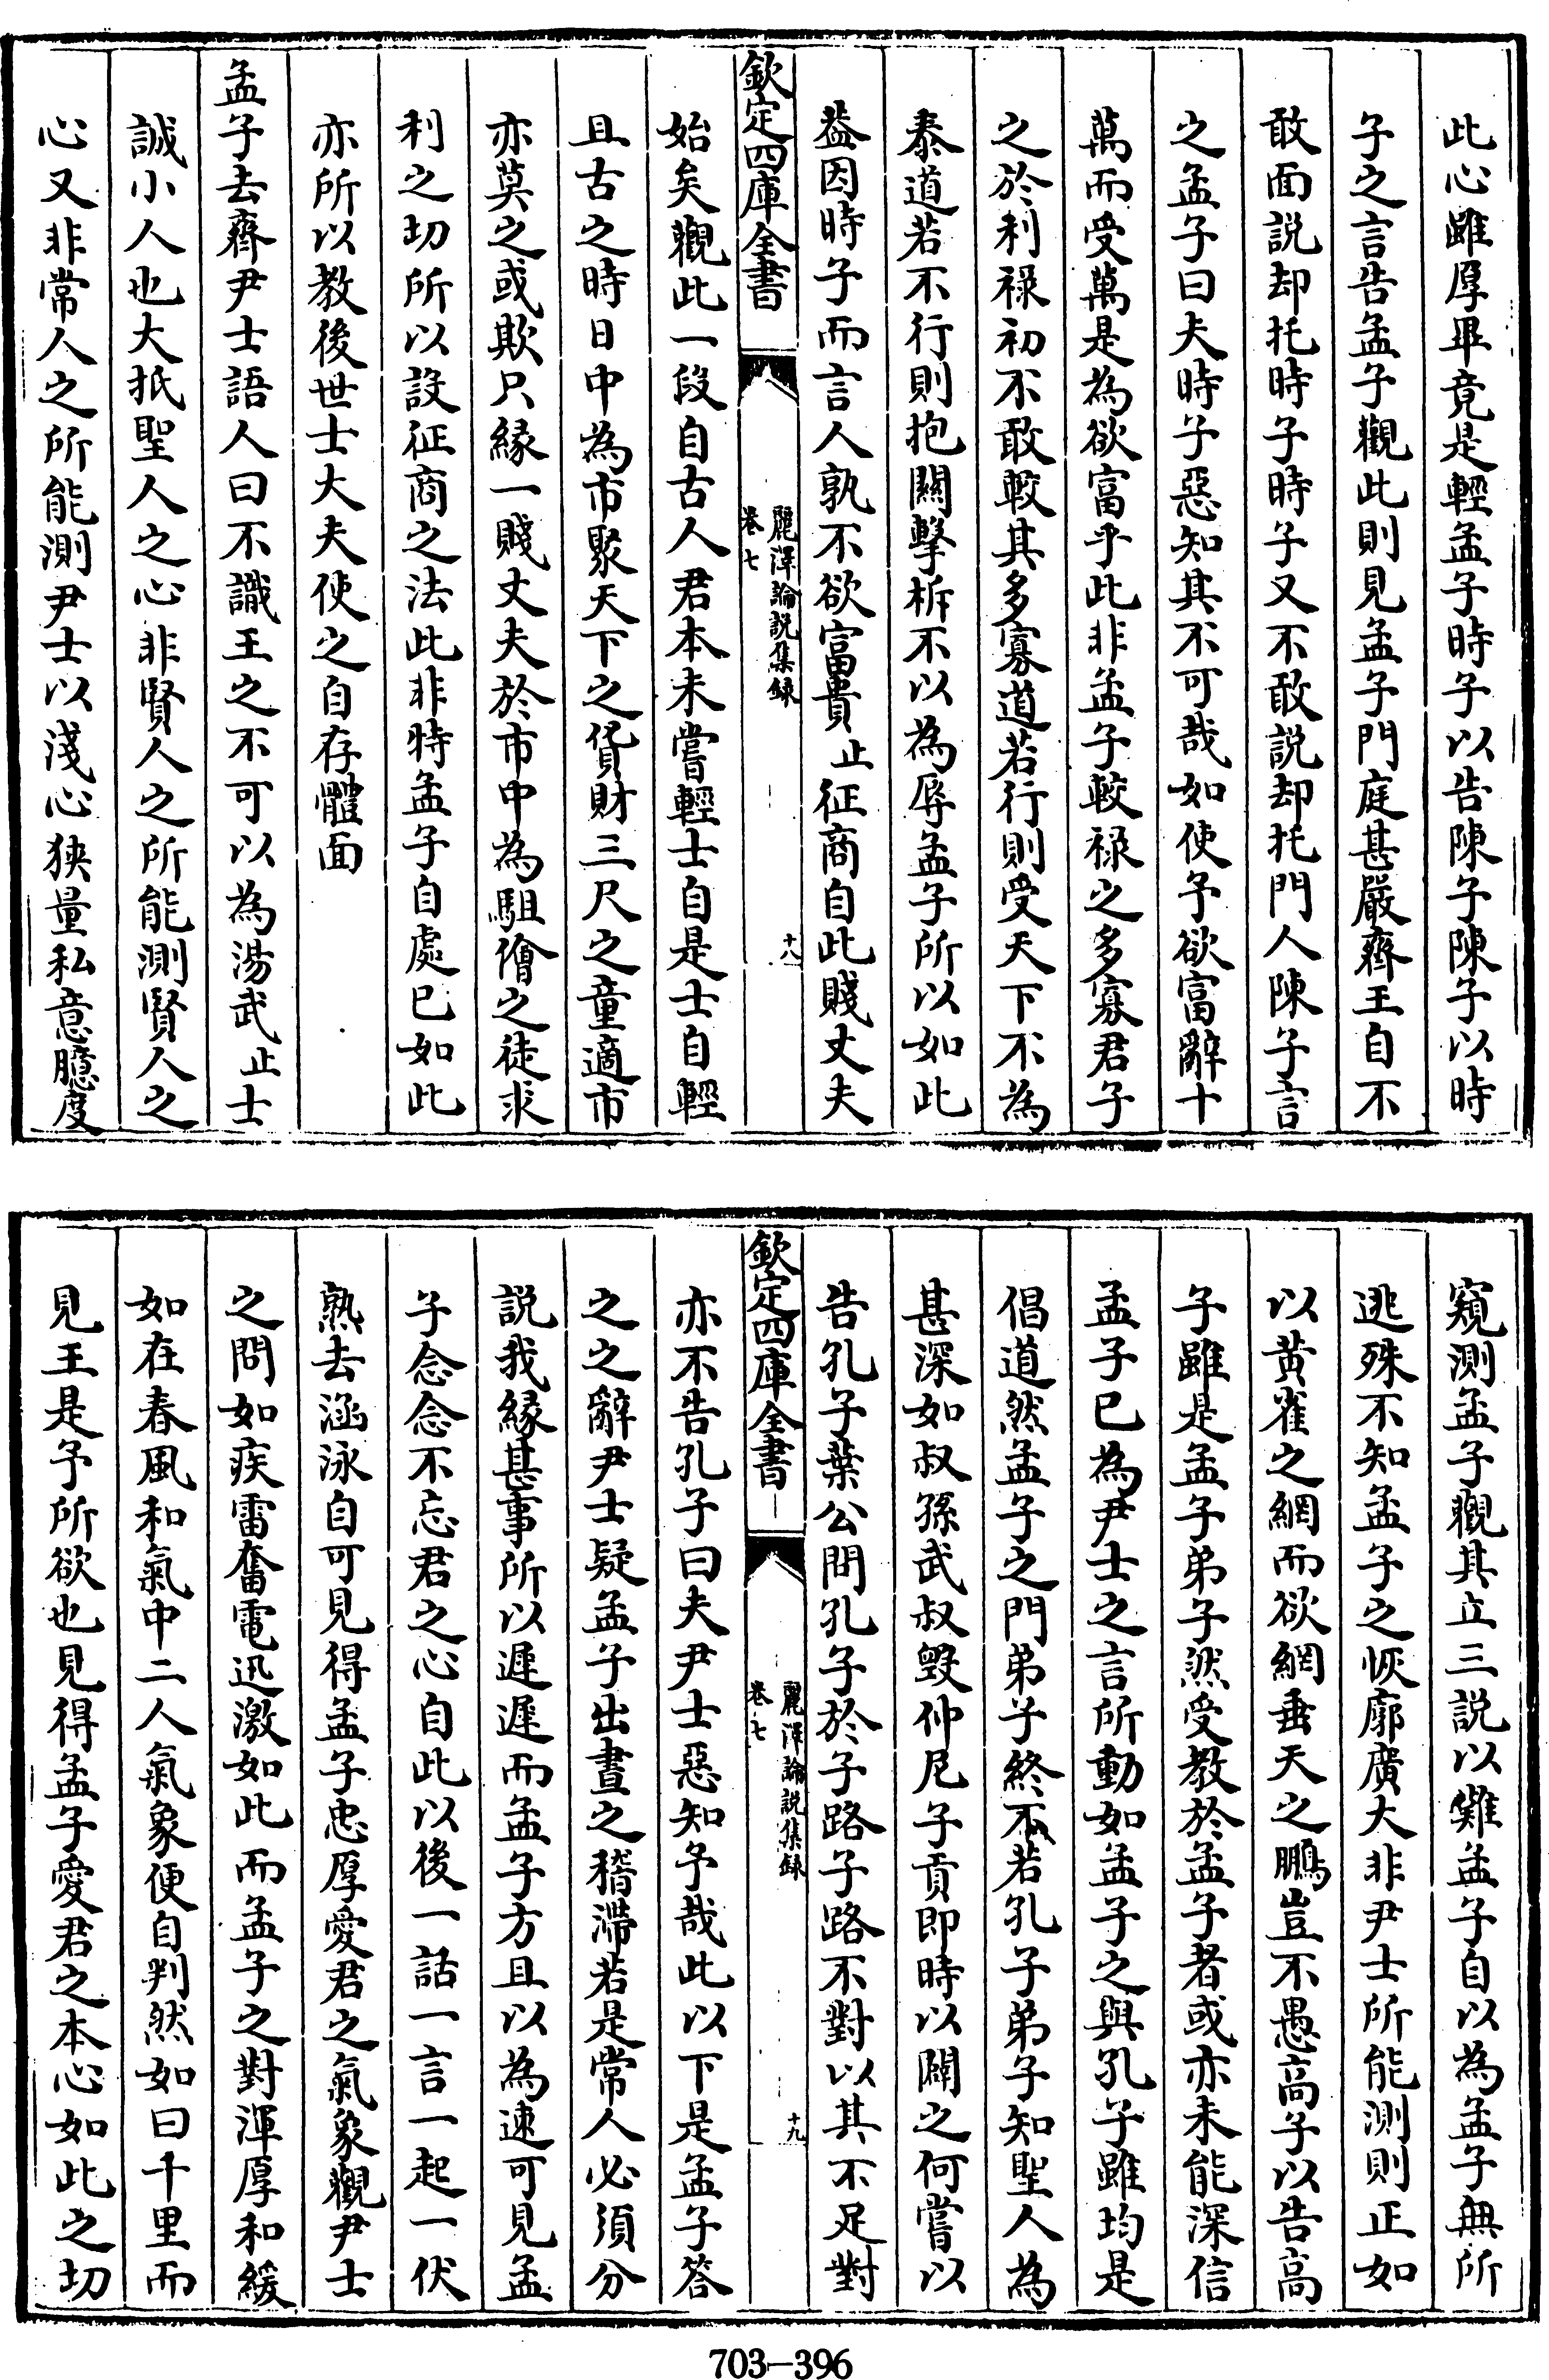 此心雖厚畢竟是輕孟子時子以告陳子陳子以時
子之言告孟子觀此則見孟子門庭甚嚴齊王自不
敢面説却托時子時子又不敢説却托門人陳子言
之孟子曰夫時子惡知其不可哉如使予欲富辭十
萬而受萬是為欲富乎此非孟子較禄之多寡君子
之於利祿初不敢較其多寡道若行則受天下不為
泰道若不行則抱關擊柝不以為辱孟子所以如此
葢因時子而言人孰不欲富貴止征商自此賤丈夫
欽定四庫全書
麗澤論説集録
卷七
十八
始矣觀此一段自古人君本未嘗輕士自是士自輕
且古之時日中為市聚天下之貨財三尺之童適市
亦莫之或欺只緣一賤丈夫於市中為駔儈之徒求
利之切所以設征商之法此非特孟子自處已如此
亦所以教後世士大夫使之自存體面
孟子去齊尹士語人曰不識王之不可以為湯武止士
誠小人也大抵聖人之心非賢人之所能測賢人之
心又非常人之所能測尹士以淺心狹量私意臆度
窺測孟子觀其立三説以難孟子自以為孟子無所
逃殊不知孟子之恢廓廣大非尹士所能測則正如
以黄雀之網而欲網垂天之鵬豈不愚高子以告高
子雖是孟子弟子然受教於孟子者或亦未能深信
孟子已為尹士之言所動如孟子之與孔子雖均是
倡道然孟子之門弟子終不若孔子弟子知聖人為
甚深如叔孫武叔毀仲尼子貢即時以闢之何嘗以
告孔子葉公問孔子於子路子路不對以其不足對
欽定四庫全書
麗澤論説集録
卷七
十九
亦不告孔子曰夫尹士惡知予哉此以下是孟子答
之之辭尹士疑孟子出晝之稽滯若是常人必須分
説我緣甚事所以遲遲而孟子方且以為速可見孟
子念念不忘君之心自此以後一話一言一起一伏
熟去涵泳自可見得孟子忠厚愛君之氣象觀尹士
之問如疾雷奮電迅激如此而孟子之對渾厚和緩
如在春風和氣中二人氣象便自判然如曰千里而
見王是予所欲也見得孟子愛君之本心如此之切
703-396